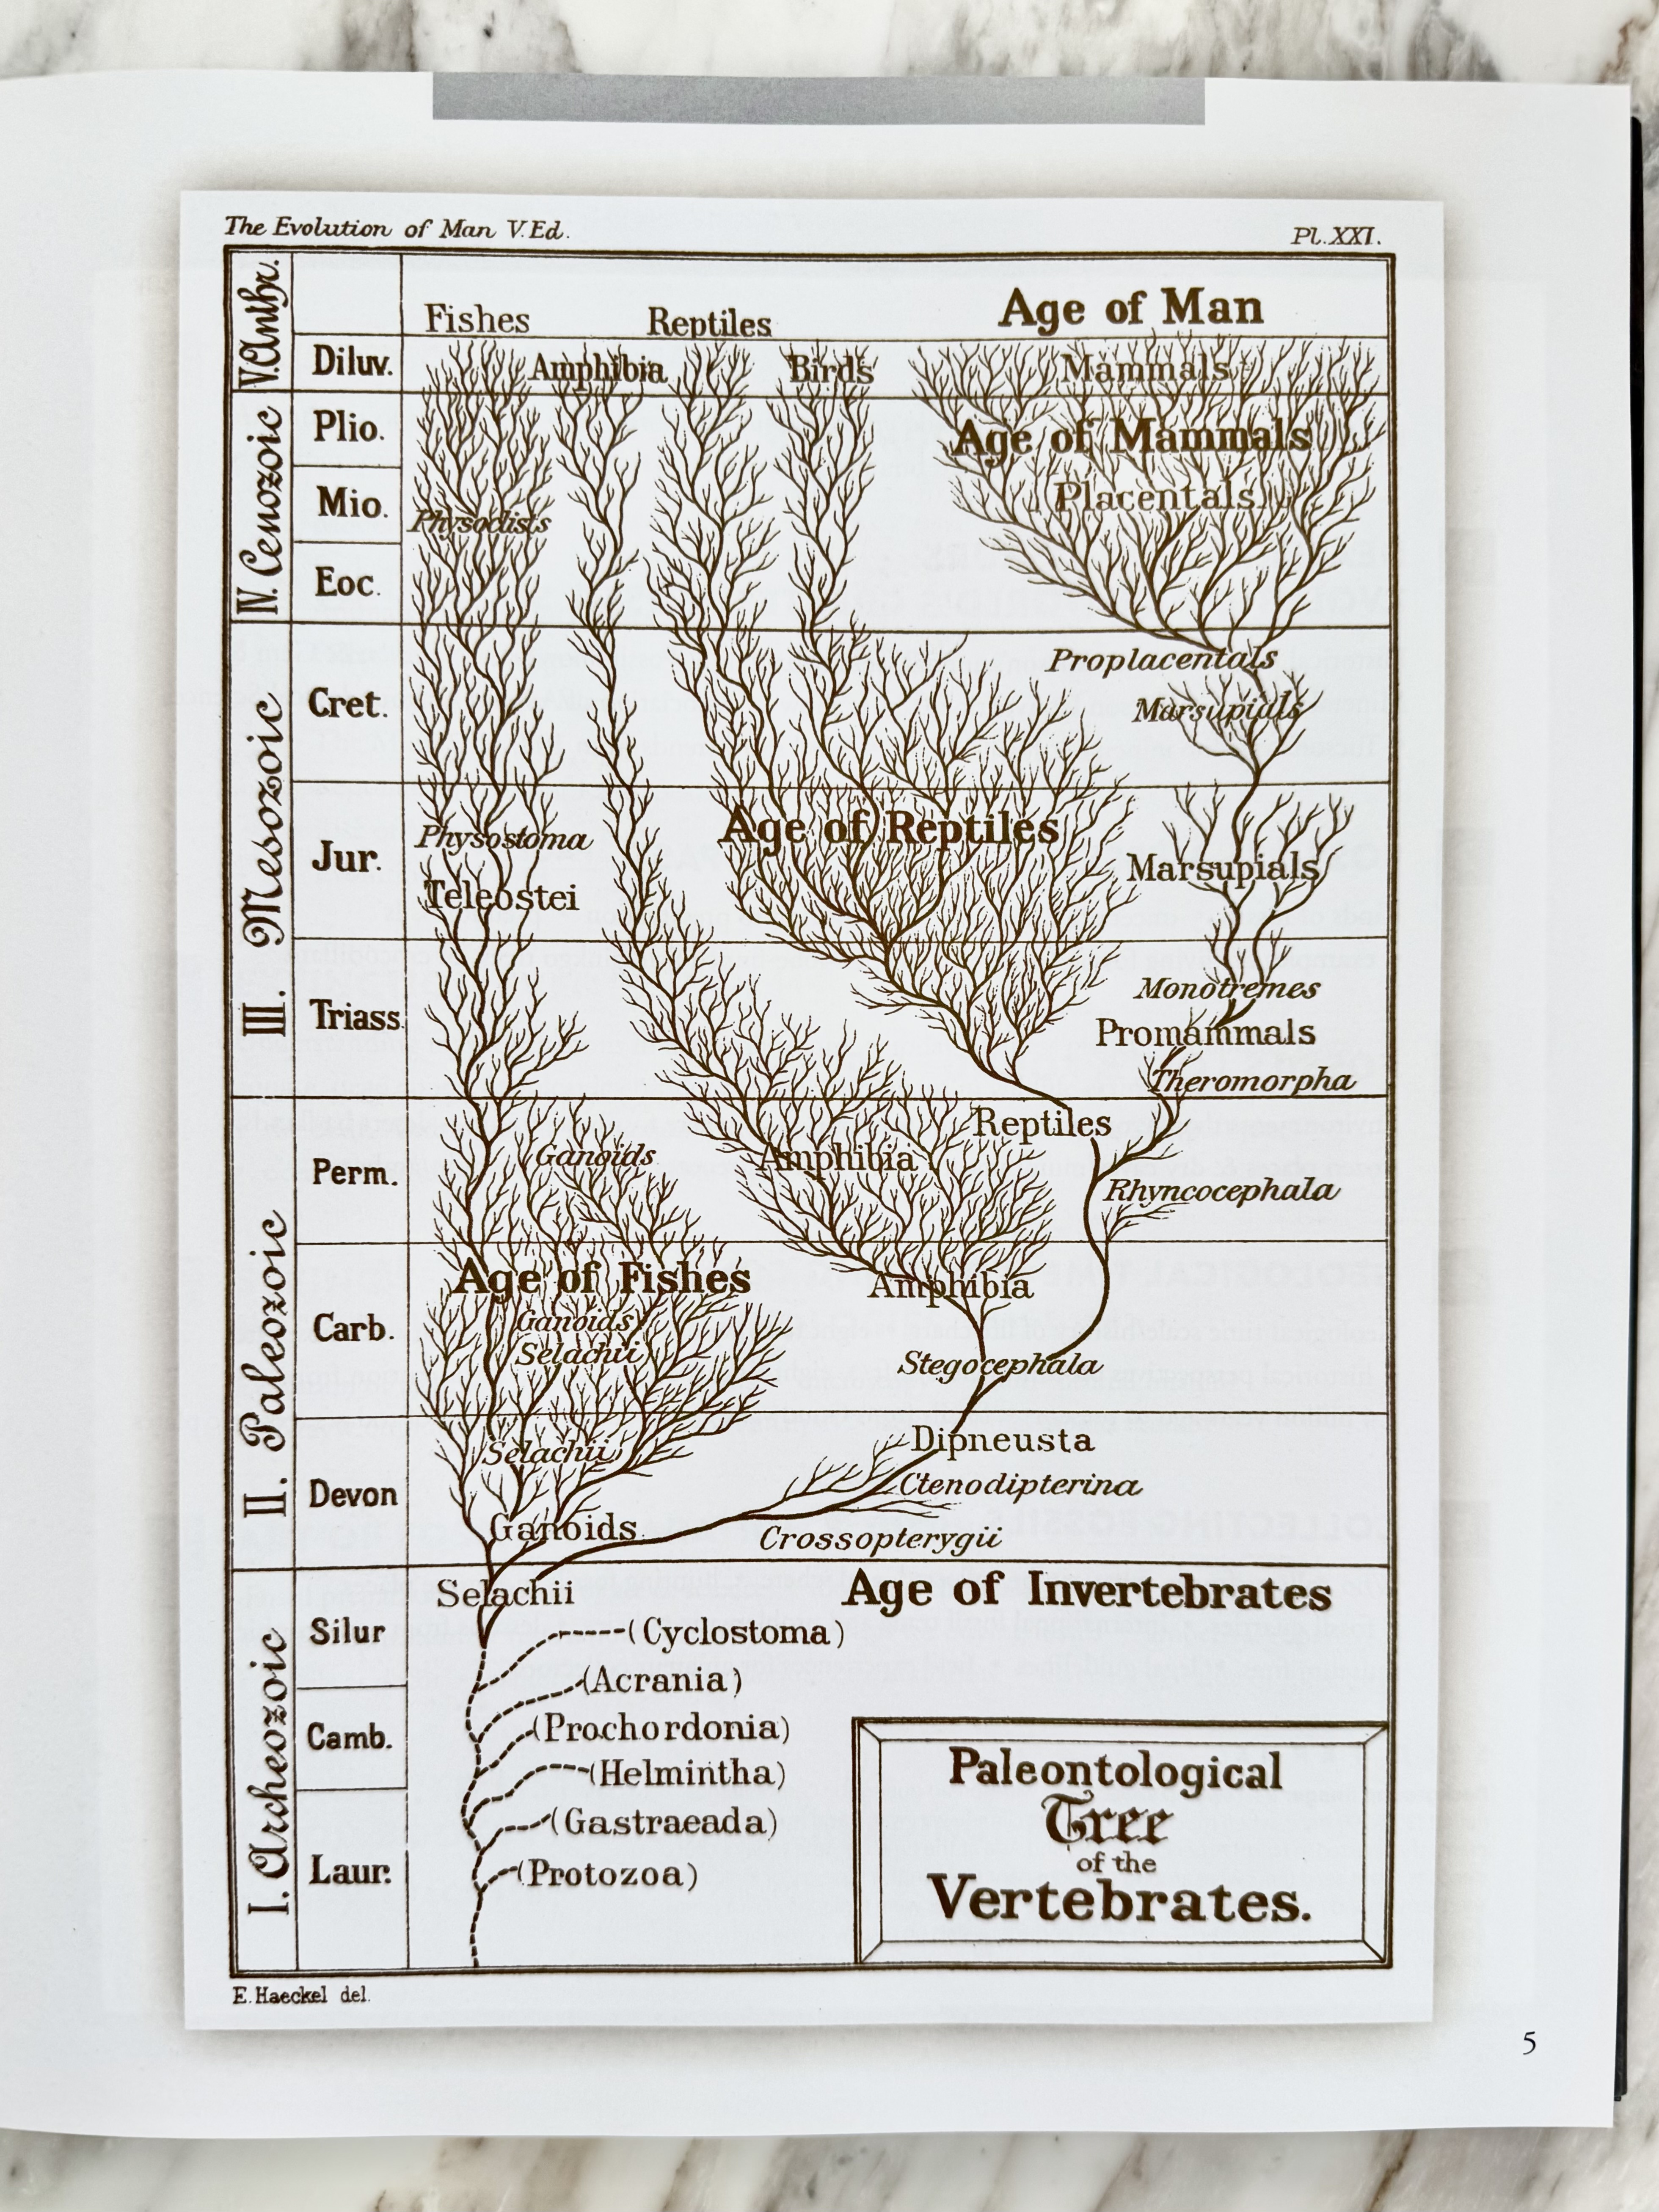 The Evolution of Man V.Ed.
Pl.XXI.
V.Anthr.
Fishes
Reptiles
Age of Man
Diluv.
Amphibia
Birds
Mammals
IV. Cenozoic
Plio.
Age of Mammals
Mio.
Placentals
Physoclists
Eoc.
III. Mesozoic
Cret.
Proplacentals
Marsupials
Jur.
Physostoma
Age of Reptiles
Marsupials
Teleostei
Triass.
Monotremes
Promammals
Theromorpha
II. Paleozoic
Perm.
Reptiles
Ganoids
Amphibia
Rhyncocephala
Carb.
Age of Fishes
Amphibia
Ganoids
Selachii
Stegocephala
Devon
Selachii
Dipneusta
Ctenodipterina
Ganoids
Crossopterygii
I. Archeozoic
Selachii
Age of Invertebrates
Silur
(Cyclostoma)
(Acrania)
Camb.
(Prochordonia)
(Helmintha)
(Gastraeada)
Laur.
(Protozoa)
Paleontological
Tree
of the
Vertebrates.
E.Haeckel del.
5